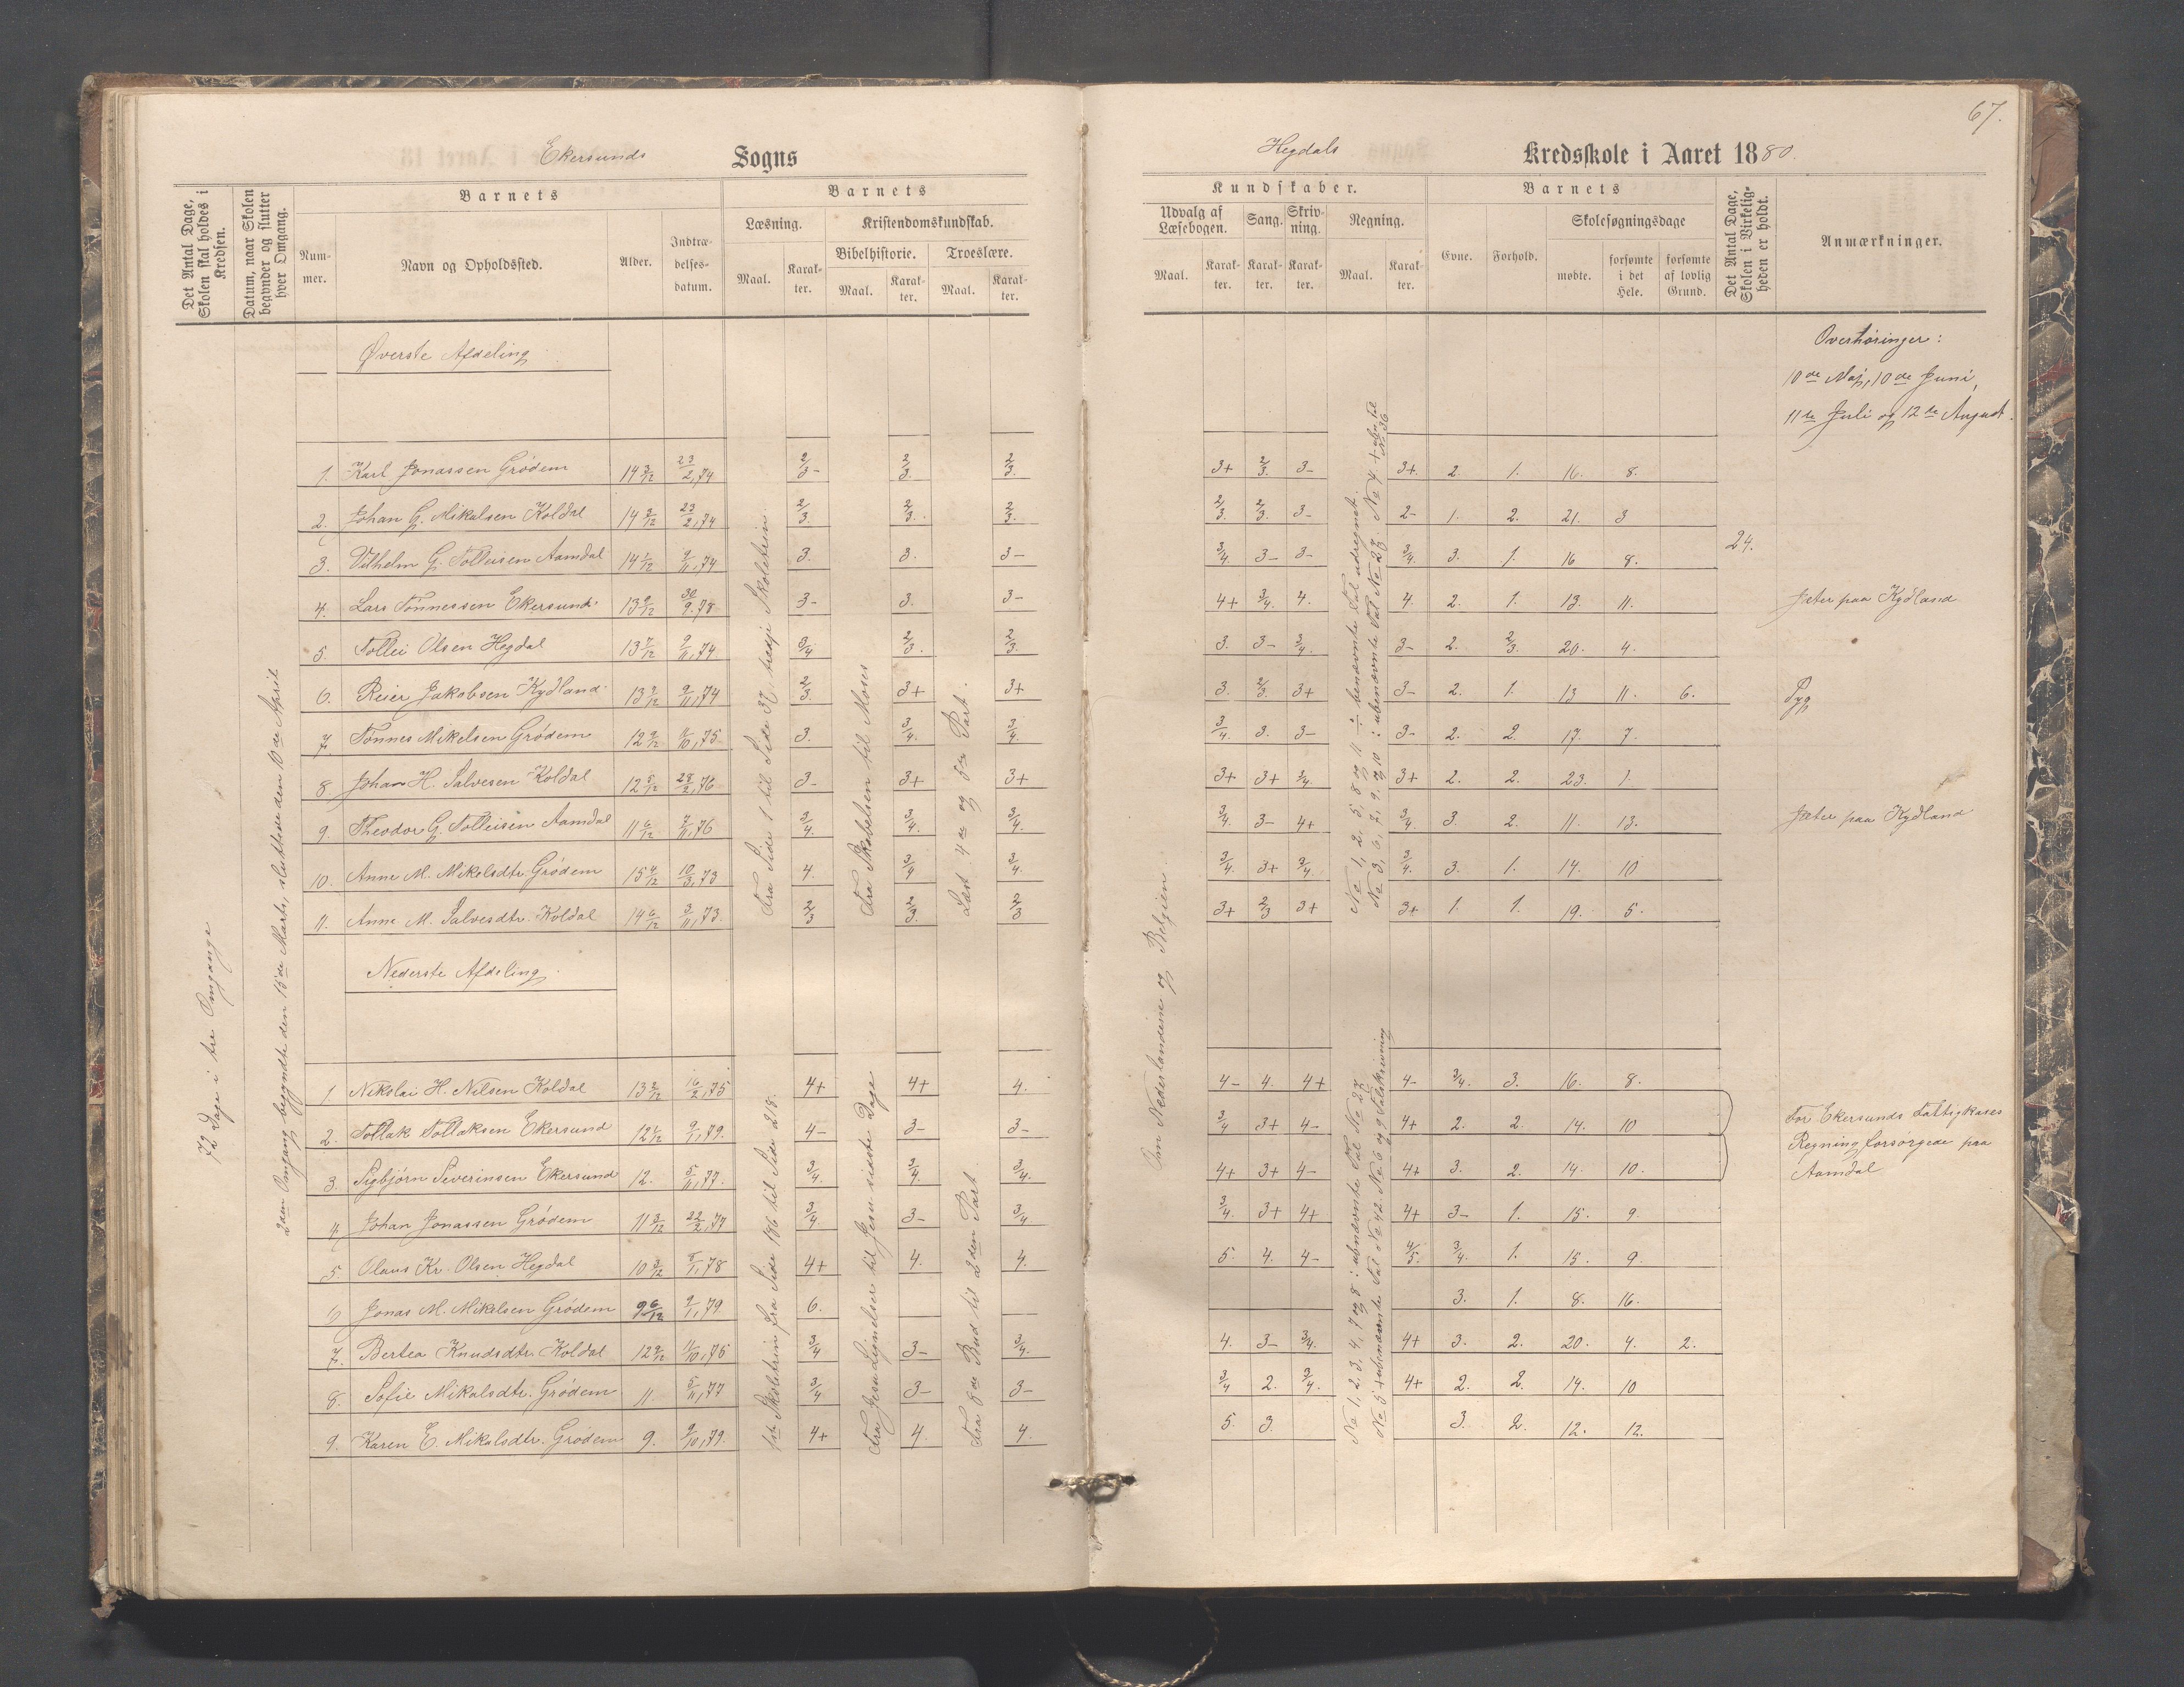 67.
Ekersunds Sogns
Hegdals Kredsskole i Aaret 1880.
Det Antal Dage, Skolen skal holdes i Kredsen.
Datum, naar Skolen begynder og slutter hver Omgang.
Barnets
Nummer.
Navn og Opholdssted.
Alder.
Indtrædelsesdatum.
Barnets
Læsning.
Maal.
Karakter.
Kristendomskundskab.
Bibelhistorie.
Maal.
Karakter.
Troeslære.
Maal.
Karakter.
Kundskaber.
Udvalg af Læsebogen.
Maal.
Karakter.
Sang.
Karakter.
Skrivning.
Karakter.
Regning.
Maal.
Karakter.
Barnets
Evne.
Forhold.
Skolesøgningsdage
mødte.
forsømte i det Hele.
forsømte af lovlig Grund.
Det Antal Dage, Skolen i Virkeligheden er holdt.
Anmærkninger.
72 Dage i tre Omgange
2den Omgang begyndte den 15de Marts, sluttede den 10de April.
Øverste Afdeling
Overhøringer:
10de Maj, 10de Juni,
11te Juli og 12te August.
Fra Side 1 til Side 37, tredje Skoletrin.
Fra Skabelsen til Moses
Læst 4de og 5te Part.
Om Nederlandene og Belgien.
No 1, 2, 5, 8 og 11 ÷ benævnte Tal udregnet.
No 3, 6, 7, 9, og 10 : ubenævnte Tal No 27 No 4 + ubn. til No 36
24.
1. Karl Jonassen Grødem 14 3/12 23/2,74 2/3- 2/3. 2/3. 3+ 2/3. 3- 3+. 2. 1. 16. 8.
2. Johan G. Mikalsen Koldal 14 3/12 23/2,74 2/3. 2/3. 2/3. 2/3. 2/3. 3- 2- 1. 2. 21. 3
3. Vilhelm G. Tolleisen Aamdal 14 1/12 9/11,74 3. 3. 3- 3/4. 3- 3- 3/4. 3. 1. 16 8.
4. Lars Tønnessen Ekersund 13 9/12 30/9,78 3- 3. 3- 4+ 3/4. 4. 4. 2. 1. 13. 11. Jæter paa Kydland
5. Tollei Olsen Hegdal 13 7/12 9/11,74 3/4 2/3. 2/3. 3. 3- 3/4. 3- 2. 2/3. 20. 4.
6. Reier Jakobsen Kydland 13 3/12 9/11,74 2/3. 3+ 3+ 3. 2/3. 3+ 3- 2. 1. 13 11. 6. Syg
7. Tønnes Mikelsen Grødem 12 9/12 9/10,75 3. 3/4. 3/4. 3/4. 3. 3- 3- 2. 2. 17. 7.
8. Johan H. Salvesen Koldal 12 5/12 28/2,76 3- 3+ 3+ 3+ 3+ 3/4. 3+ 2. 2. 23. 1.
9. Theodor G. Tolleisen Aamdal 11 6/12 7/11,76 3/4. 3/4. 3/4. 3/4. 3- 4+ 3/4. 3. 2. 11. 13. Jæter paa Kydland
10. Anne M. Mikelsdtr. Grødem 15 4/12 10/3,73 4. 3/4 3/4. 3/4. 3+ 3/4. 3/4. 3. 1. 14. 10
11. Anne M. Salvesdtr. Koldal 14 6/12 3/11,73. 2/3 2/3. 2/3 3+ 2/3 3+ 3+ 1. 1. 19. 5.
Nederste Afdeling.
1ste Skoletrin fra Side 186 til Side 218.
Fra Jesu Lignelser til Jesu sidste Dage
Fra 8de Bud til 2den Part
No 1, 2, 3, 4, 7 og 8 : ubnævnte Tal No 27
No 5 + ubenævnte Tal No 42. No 6 og 9 Talskrivning
1. Nikolai H. Nilsen Koldal 13 3/12 16/2,75 4+ 4+ 4. 4- 4. 4+ 4- 3/4. 3. 16. 8.
2. Tollak Tollaksen Ekersund 12 1/12 9/1,79. 4- 3- 3- 3/4 3+ 4- 4+ 2. 2. 14. 10
3. Sigbjørn Severinsen Ekersund 12. 5/11,77. 3/4. 3/4. 3/4. 4+ 3+ 4- 4+ 3. 2. 14. 10.
For Ekersunds Fattigkases
Regning forsørgede paa
Aamdal
4. Johan Jonassen Grødem 11 3/12 22/2,77 3/4 3- 3/4 3/4. 3+ 4+ 4+ 3- 1. 15. 9.
5. Olaus Kr. Olsen Hegdal 10 3/12 8/1,78 4+ 4. 4. 5. 4. 4- 4/5. 3/4. 1. 15. 9.
6. Jonas M. Mikelsen Grødem 9 6/12 9/1,79 6. 3. 1. 8. 16.
7. Bertea Knudsdtr. Koldal 12 9/12 11/10,75 3/4 3- 3/4. 4. 3- 3/4. 4+ 3. 2. 20. 4. 2.
8. Sofie Mikalsdtr. Grødem 11. 5/11,77 3/4 3- 3- 3/4 2. 3/4. 4+ 2. 2. 14. 10
9. Karen E. Mikalsdtr. Grødem 9. 9/10,79. 4+ 4. 4. 5. 3. 3. 2. 12. 12.